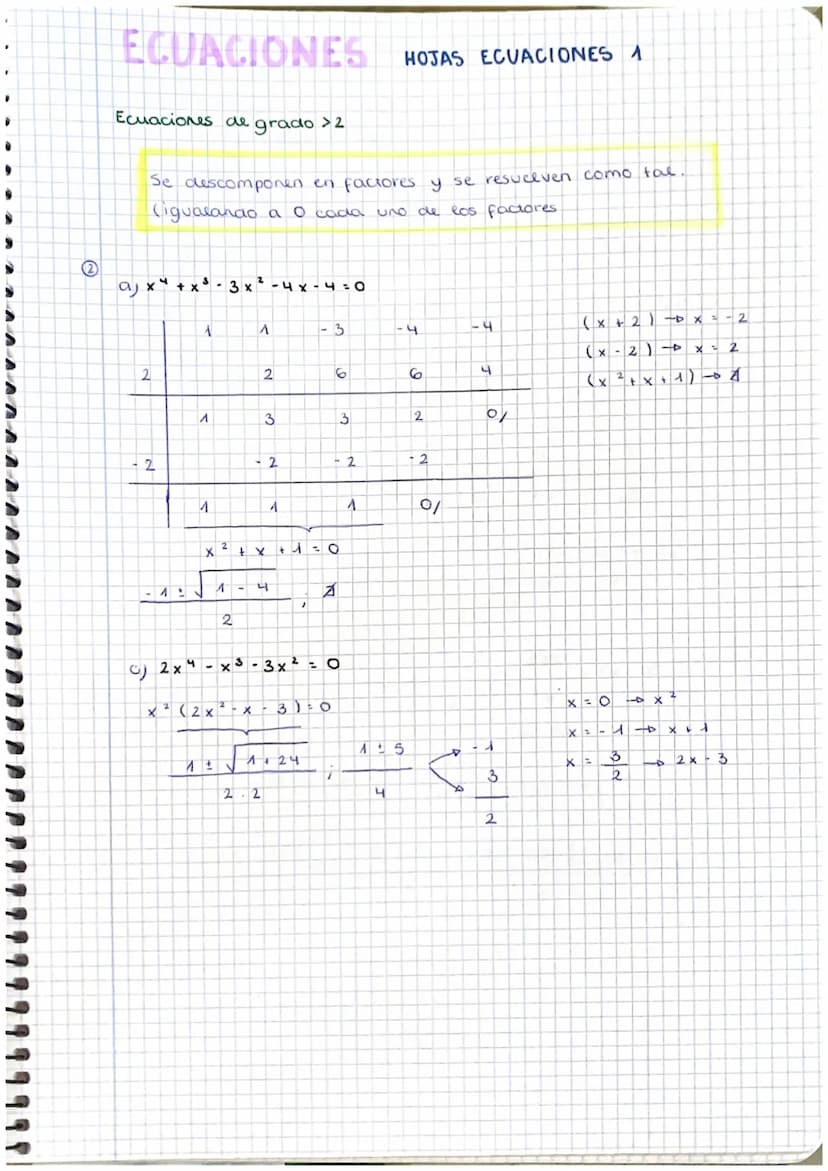 ECUACIONES HOJAS ECUACIONES 1
Ecuaciones de grado >2
Se descomponen en factores y se resuelven como tal.
(igualando a 0 cada uno de los factores
②
a) x⁴ + x³ - 3x² - 4x - 4 = 0
1 1 -3 -4 -4
2 2 6 6 4
1 3 3 2 0/
-2 -2 -2 -2
1 1 1 0/
x² + x + 1 = 0
-1 ± √1 - 4 ; ∄
2
(x + 2) → x = -2
(x - 2) → x = 2
(x² + x + 1) → ∄
c) 2x⁴ - x³ - 3x² = 0
x² (2x² - x - 3) = 0
1 ± √1 + 24 ; 1 ± 5 -1
2 . 2 4 3
2
x = 0 → x²
x = -1 → x + 1
x = 3 → 2x - 3
2